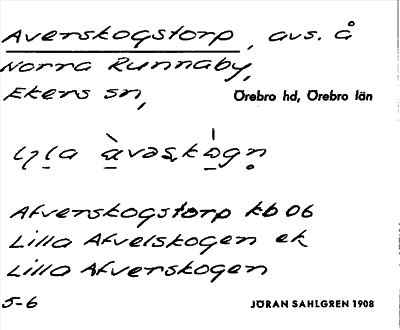 Averskogstorp, avs. å
Norra Runnaby,
Ekers sn, Örebro hd, Örebro län
Afverskogstorp kb 06
Lilla Afvelskogen ek
Lilla Afverskogen
5-6 JÖRAN SAHLGREN 1908